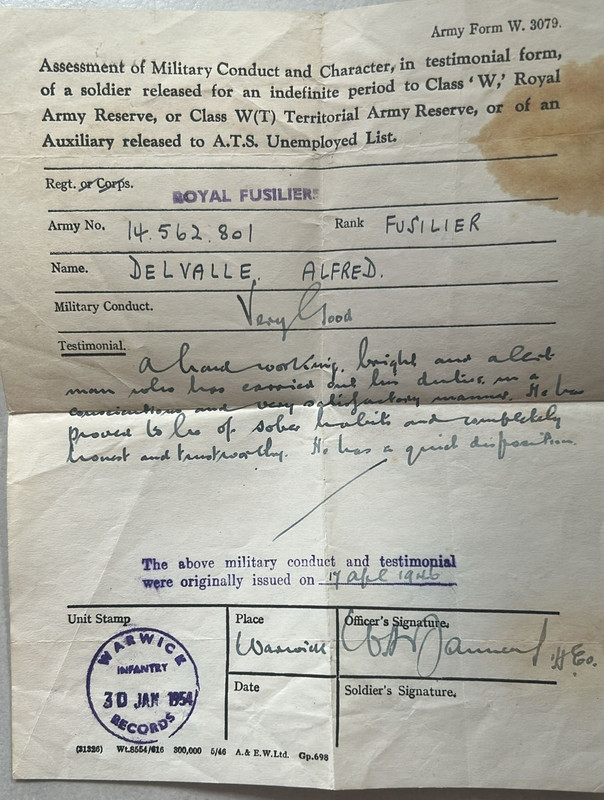 Army Form W. 3079.
Assessment of Military Conduct and Character, in testimonial form,
of a soldier released for an indefinite period to Class ‘W,’ Royal
Army Reserve, or Class W(T) Territorial Army Reserve, or of an
Auxiliary released to A.T.S. Unemployed List.
Regt. or Corps.
ROYAL FUSILIERS
Army No. 14.562.801 Rank FUSILIER
Name. DELVALLE, ALFRED.
Military Conduct. Very Good
Testimonial.
A hard working, bright and alert
man who has carried out his duties in a
conscientious and very satisfactory manner. He has
proved to be of sober habits and completely
honest and trustworthy. He has a quiet disposition.
The above military conduct and testimonial
were originally issued on 17 Apl 1946
Unit Stamp
Place
Officer's Signature.
WARWICK
INFANTRY
30 JAN 1954
RECORDS
Warwick
Date
Soldier's Signature.
(31326) Wt.8554/616 300,000 5/46 A. & E.W.Ltd. Gp.698